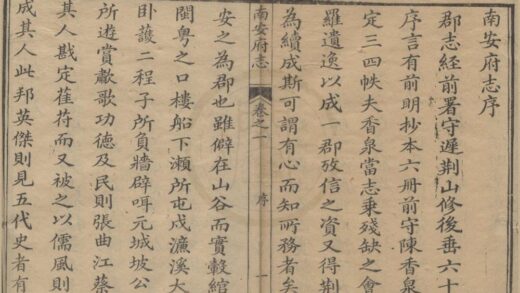 南安府志序
郡志經前署守遲荆山修後垂六十
序言有前明抄本六册前守陳香泉
定三四帙夫香泉當志乘殘缺之會
羅遺逸以成一郡攷信之資又得荆
為續成斯可謂有心而知所務者矣
南安府志 卷之一 序 一
安之為郡也雖僻在山谷而實轂綰
閩粤之口樓船下瀨所屯戍濂溪大
卧護二程子所負牆辟咡元城坡公
所遊賞獻歌功德及民則張曲江蔡
其人戡定萑苻而又被之以儒風則
成其人此邦英傑則見五代史者有